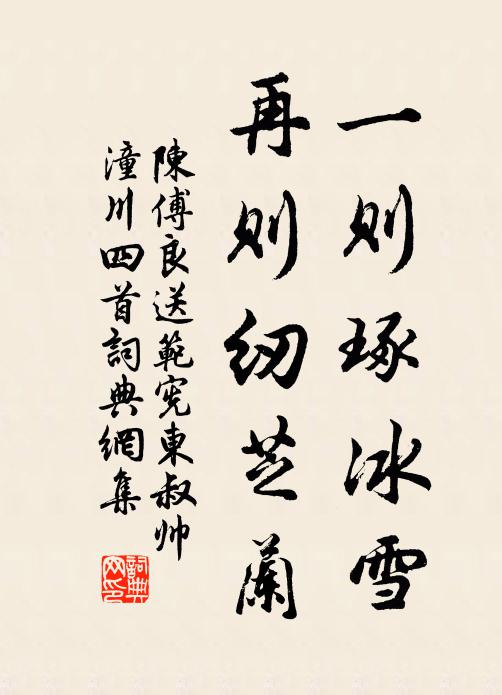 一则琢冰雪
再则纫芝蘭
陳傅良送範宪東叔帅
潼川四首詞典網集
詞典网印